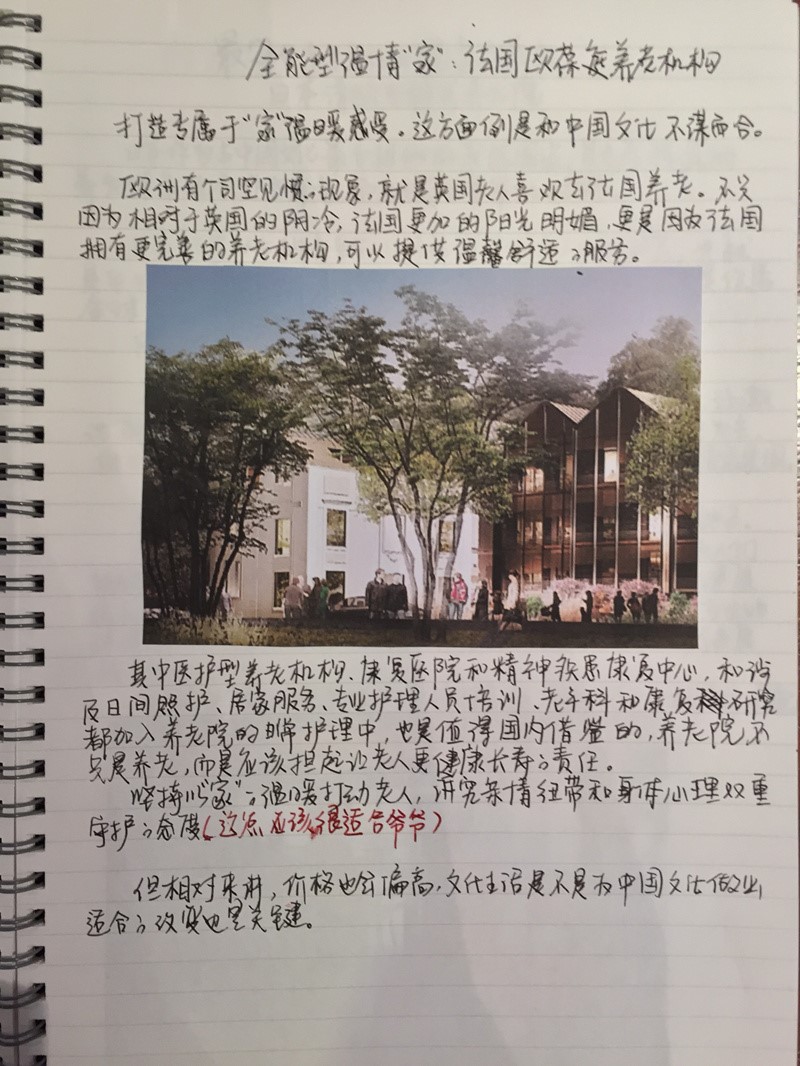 全能型温情“家”：法国欧葆庭养老机构
打造专属于“家”温暖感受。这方面倒是和中国文化不谋而合。
欧洲有个司空见惯的现象，就是英国老人喜欢去法国养老。不只
因为相对于英国的阴冷，法国更加的阳光明媚，更是因为法国
拥有更完善的养老机构，可以提供温馨舒适的服务。
其中医护型养老机构、康复医院和精神疾患康复中心，和涉
及日间照护、居家服务、专业护理人员培训、老年科和康复研究
都加入养老院的日常护理中，也是值得国内借鉴的，养老院不
只是养老，而是应该担起让老人更健康长寿的责任。
坚持以“家”的温暖打动老人，讲究亲情纽带和身体心理双重
守护的态度（这点应该很适合爷爷）
但相对来讲，价格也会偏高，文化生活是不是为中国文化做出
适合的改变也是关键。